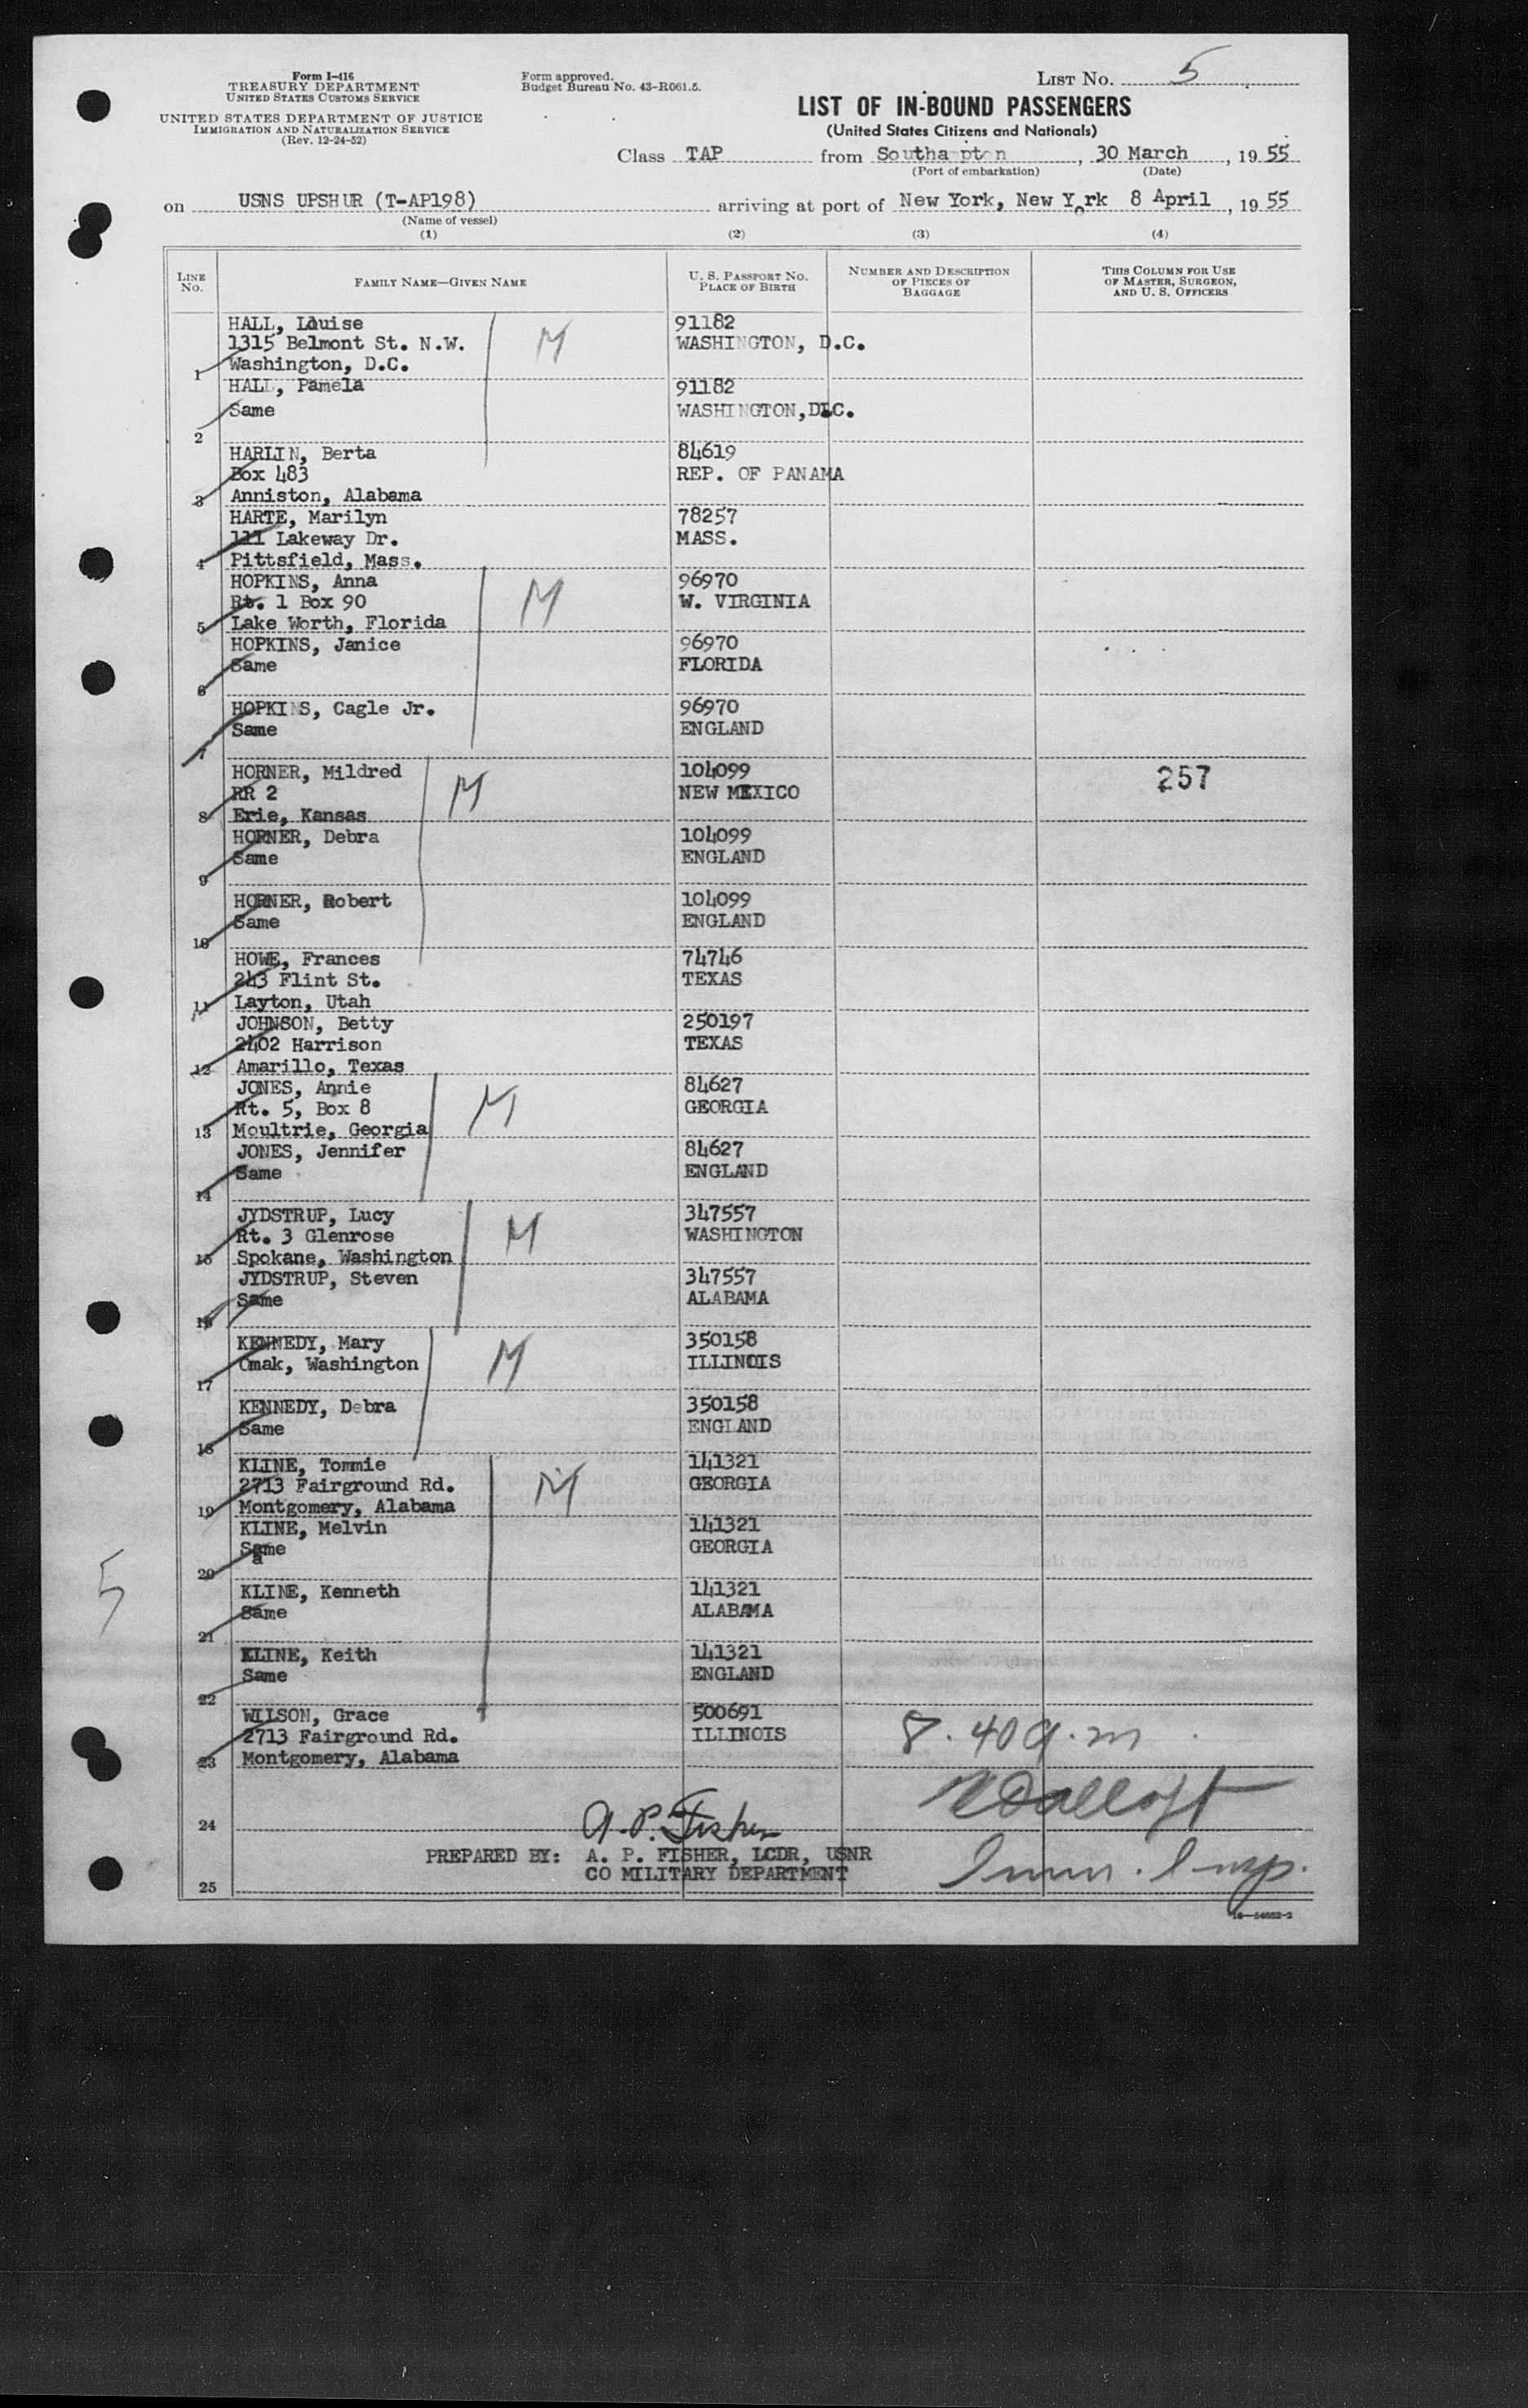 Form I-416
TREASURY DEPARTMENT
UNITED STATES CUSTOMS SERVICE
UNITED STATES DEPARTMENT OF JUSTICE
IMMIGRATION AND NATURALIZATION SERVICE
(Rev. 12-24-52)
Form approved.
Budget Bureau No. 43-R061.5.
LIST NO. 5
LIST OF IN-BOUND PASSENGERS
(United States Citizens and Nationals)
Class TAP from Southa pton, 30 March, 1955
(Port of embarkation) (Date)
on USNS UPSHUR (T-AP198) arriving at port of New York, New York 8 April, 1955
(Name of vessel)
(1) (2) (3) (4)
LINE NO.
FAMILY NAME—GIVEN NAME
U. S. PASSPORT NO.
PLACE OF BIRTH
NUMBER AND DESCRIPTION
OF PIECES OF
BAGGAGE
THIS COLUMN FOR USE
OF MASTER, SURGEON,
AND U. S. OFFICERS
HALL, Louise 91182
1315 Belmont St. N.W. M WASHINGTON, D.C.
1 Washington, D.C.
HALL, Pamela 91182
Same WASHINGTON, D.C.
2
HARLIN, Berta 84619
Box 483 REP. OF PANAMA
3 Anniston, Alabama
HARTE, Marilyn 78257
111 Lakeway Dr. MASS.
4 Pittsfield, Mass.
HOPKINS, Anna 96970
Rt. 1 Box 90 M W. VIRGINIA
5 Lake Worth, Florida
HOPKINS, Janice 96970
Same FLORIDA
6
HOPKINS, Cagle Jr. 96970
Same ENGLAND
7
HORNER, Mildred 104099 257
RR 2 M NEW MEXICO
8 Erie, Kansas
HORNER, Debra 104099
Same ENGLAND
9
HORNER, Robert 104099
Same ENGLAND
10
HOWE, Frances 74746
243 Flint St. TEXAS
11 Layton, Utah
JOHNSON, Betty 250197
2402 Harrison TEXAS
12 Amarillo, Texas
JONES, Annie 84627
Rt. 5, Box 8 M GEORGIA
13 Moultrie, Georgia
JONES, Jennifer 84627
Same ENGLAND
14
JYDSTRUP, Lucy 347557
Rt. 3 Glenrose M WASHINGTON
15 Spokane, Washington
JYDSTRUP, Steven 347557
Same ALABAMA
16
KENNEDY, Mary 350158
Omak, Washington M ILLINOIS
17
KENNEDY, Debra 350158
Same ENGLAND
18
KLINE, Tommie 141321
2713 Fairground Rd. M GEORGIA
19 Montgomery, Alabama
KLINE, Melvin 141321
Same GEORGIA
20
KLINE, Kenneth 141321
Same ALABAMA
21
5
KLINE, Keith 141321
Same ENGLAND
22
WILSON, Grace 500691
2713 Fairground Rd. ILLINOIS 8.40 a.m
23 Montgomery, Alabama
24 A.P. Fisher
PREPARED BY: A. P. FISHER, LCDR, USNR
CO MILITARY DEPARTMENT Imm. Insp.
25